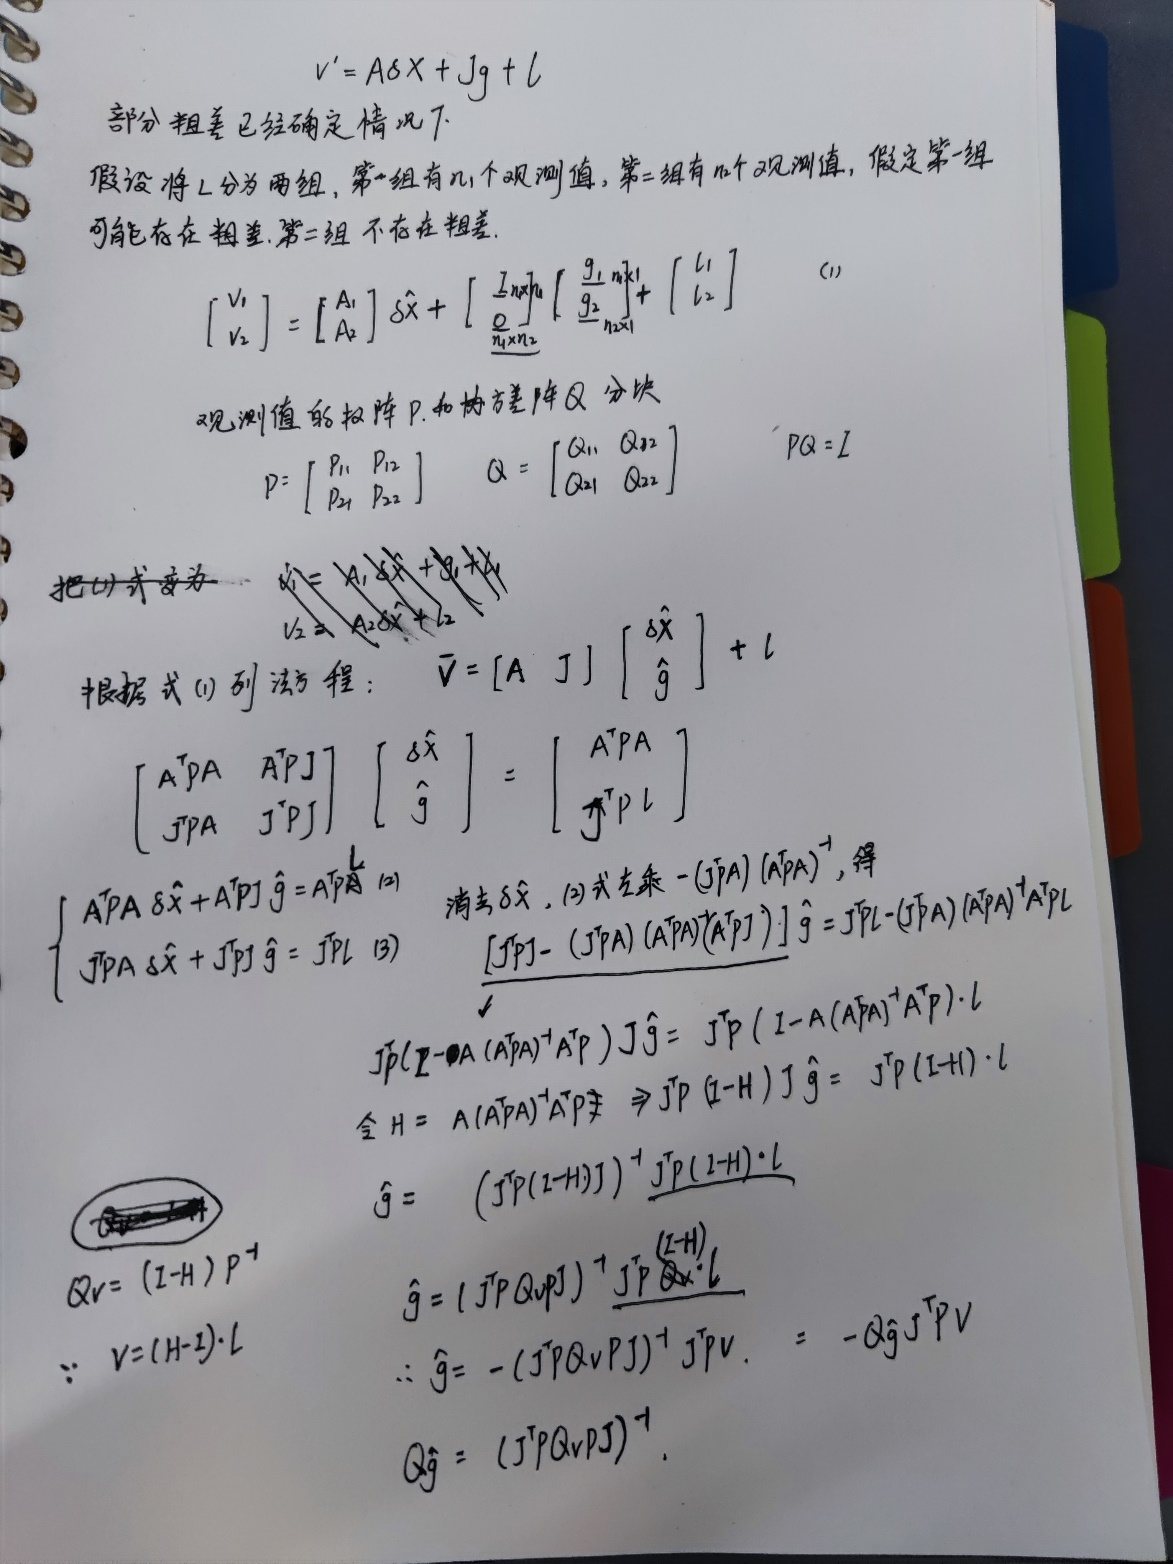 V' = AδX + Jg + l
部分粗差已经确定情况下
假设将L分为两组，第一组有n₁个观测值，第二组有n₂个观测值，假定第一组
可能存在粗差.第二组不存在粗差.
[V₁ V₂] = [A₁ A₂] δx̂ + [I n₁×n₁ 0 n₁×n₂] [g₁ n₁×1 g₂ n₂×1] + [l₁ l₂] (1)
观测值的权阵P.和协方差阵Q 分块
P = [P₁₁ P₁₂ P₂₁ P₂₂] Q = [Q₁₁ Q₁₂ Q₂₁ Q₂₂] PQ = I
把(1)式变为 V₁ = A₁δx̂ + g₁ + l₁
V₂ = A₂δx̂ + l₂
根据式(1)列法方程: V̄ = [A J] [δx̂ ĝ] + l
[AᵀPA AᵀPJ JᵀPA JᵀPJ] [δx̂ ĝ] = [AᵀPA JᵀPl]
AᵀPA δx̂ + AᵀPJ ĝ = AᵀPL (2) 消去δx̂, (2)式左乘 -(JᵀPA)(AᵀPA)⁻¹, 得
JᵀPA δx̂ + JᵀPJ ĝ = JᵀPl (3) [JᵀPJ - (JᵀPA)(AᵀPA)⁻¹(AᵀPJ)] ĝ = JᵀPl - (JᵀPA)(AᵀPA)⁻¹AᵀPl
JᵀP(I - A(AᵀPA)⁻¹AᵀP) J ĝ = JᵀP(I - A(AᵀPA)⁻¹AᵀP)·l
令 H = A(AᵀPA)⁻¹AᵀP ⇒ JᵀP(I-H)J ĝ = JᵀP(I-H)·l
ĝ = (JᵀP(I-H)J)⁻¹ JᵀP(I-H)·l
Qv = (I-H)P⁻¹
ĝ = (JᵀPQvPJ)⁻¹ JᵀP(I-H)·l
∵ V = (H-I)·l
∴ ĝ = -(JᵀPQvPJ)⁻¹ JᵀPV. = -Qĝ JᵀPV
Qĝ = (JᵀPQvPJ)⁻¹.